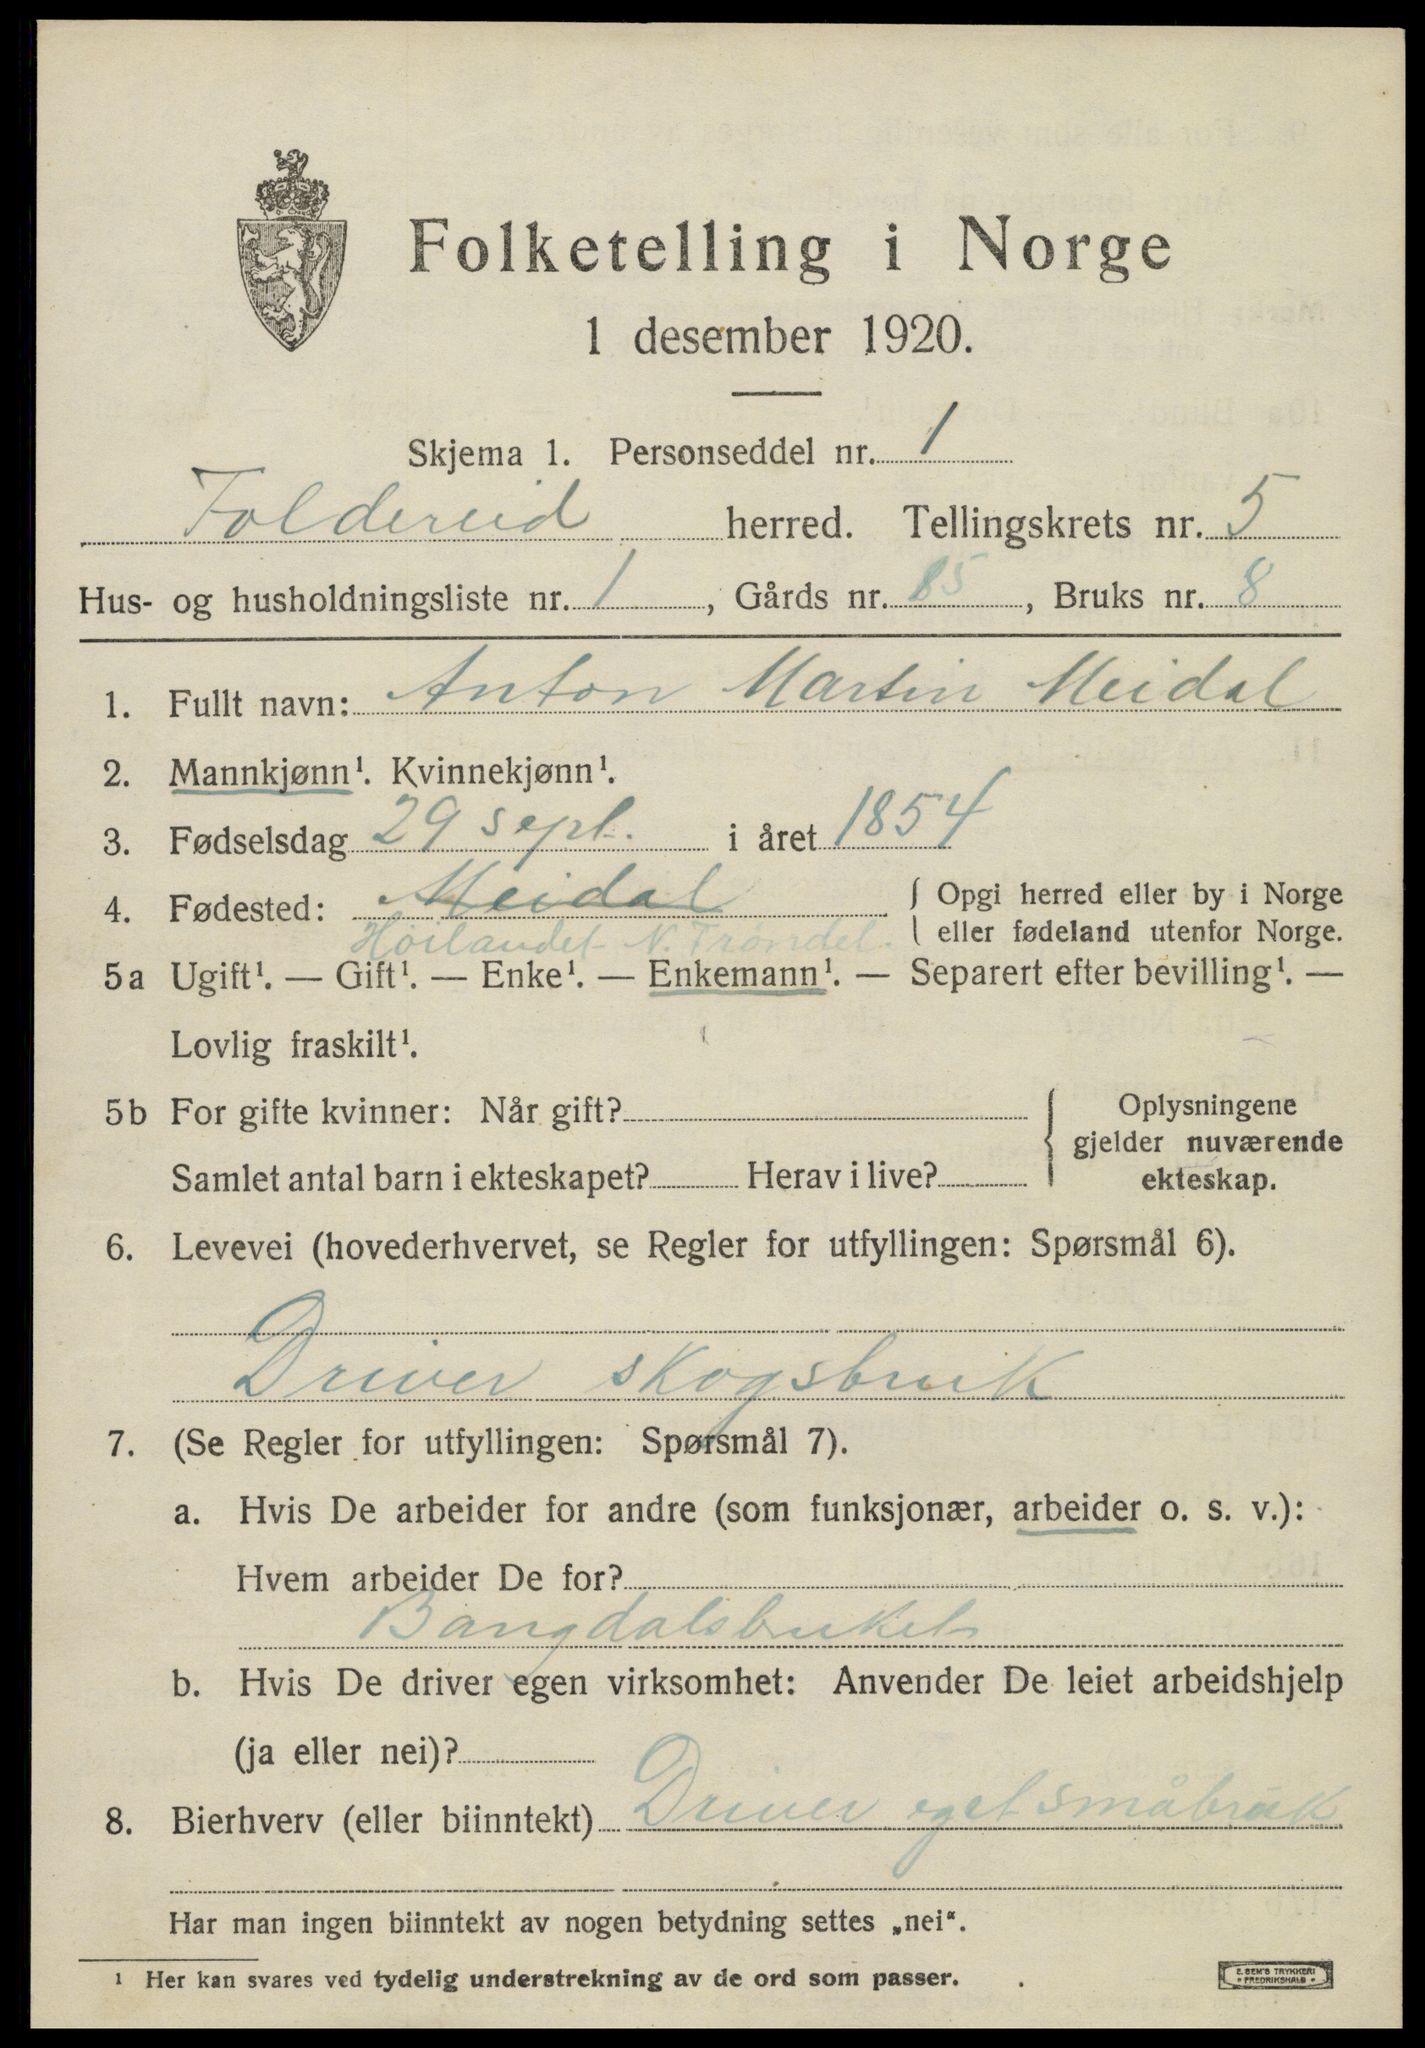 Folketelling i Norge
1 desember 1920.
Skjema 1. Personseddel nr. 1
Foldereid herred. Tellingskrets nr. 5
Hus- og husholdningsliste nr. 1, Gårds nr. 85, Bruks nr. 8
1. Fullt navn: Anton Martin Meidal
2. Mannkjønn¹. Kvinnekjønn¹.
3. Fødselsdag 29 sept. i året 1854
4. Fødested: Meidal { Opgi herred eller by i Norge
Höilandet N. Trøndel. eller fødeland utenfor Norge.
5a Ugift¹. — Gift¹. — Enke¹. — Enkemann¹. — Separert efter bevilling¹. —
Lovlig fraskilt¹.
5b For gifte kvinner: Når gift? { Oplysningene
gjelder nuværende
Samlet antal barn i ekteskapet? Herav i live? ekteskap.
6. Levevei (hovederhvervet, se Regler for utfyllingen: Spørsmål 6).
Driver skogsbruk
7. (Se Regler for utfyllingen: Spørsmål 7).
a. Hvis De arbeider for andre (som funksjonær, arbeider o. s. v.):
Hvem arbeider De for?
Bangdalsbruket
b. Hvis De driver egen virksomhet: Anvender De leiet arbeidshjelp
(ja eller nei)?
8. Bierhverv (eller biinntekt) Driver eget småbruk
Har man ingen biinntekt av nogen betydning settes „nei“.
¹ Her kan svares ved tydelig understrekning av de ord som passer.
E. SEM'S TRYKKERI
• FREDRIKSHALD •